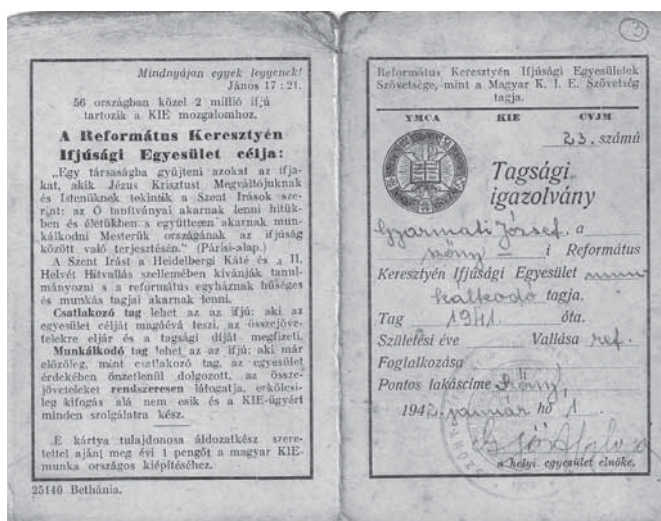 Mindnyájan egyek legyenek!
János 17 : 21.
56 országban közel 2 millió ifjú
tartozik a KIE mozgalomhoz.
A Református Keresztyén
Ifjúsági Egyesület célja:
„Egy társaságba gyűjteni azokat az ifja-
kat, akik Jézus Krisztust Megváltójuknak
és Istenüknek tekintik a Szent Írások sze-
rint: az Ő tanítványai akarnak lenni hitük-
ben és életükben s együttesen akarnak mun-
kálkodni Mesterük országának az ifjúság
között való terjesztésén.“ (Párisi-alap.)
A Szent Írást a Heidelbergi Káté és a II.
Helvét Hitvallás szellemében kívánják tanul-
mányozni s a református egyháznak hűséges
és munkás tagjai akarnak lenni.
Csatlakozó tag lehet az az ifjú: aki az
egyesület célját magáévá teszi, az összejöve-
telekre eljár és a tagsági díját megfizeti.
Munkálkodó tag lehet az az ifjú: aki már
előzőleg, mint csatlakozó tag, az egyesület
érdekében önzetlenül dolgozott, az össze-
jöveteleket rendszeresen látogatja, erkölcsi-
leg kifogás alá nem esik és a KIE-ügyért
minden szolgálatra kész.
E kártya tulajdonosa áldozatkész szere-
tettel ajánl meg évi 1 pengőt a magyar KIE-
munka országos kiépítéséhez.
25140 Bethánia.
3
Református Keresztyén Ifjúsági Egyesületek
Szövetsége, mint a Magyar K. I. E. Szövetség
tagja.
YMCA KIE CVJM
23. számú
Tagsági
igazolvány
Gyarmati József. a
szőny – i Református
Keresztyén Ifjúsági Egyesület mun
kálkodó tagja.
Tag 1941. óta.
Születési éve Vallása ref.
Foglalkozása
Pontos lakáscíme Szőny,
1942. január hó 1.
a helyi egyesület elnöke.